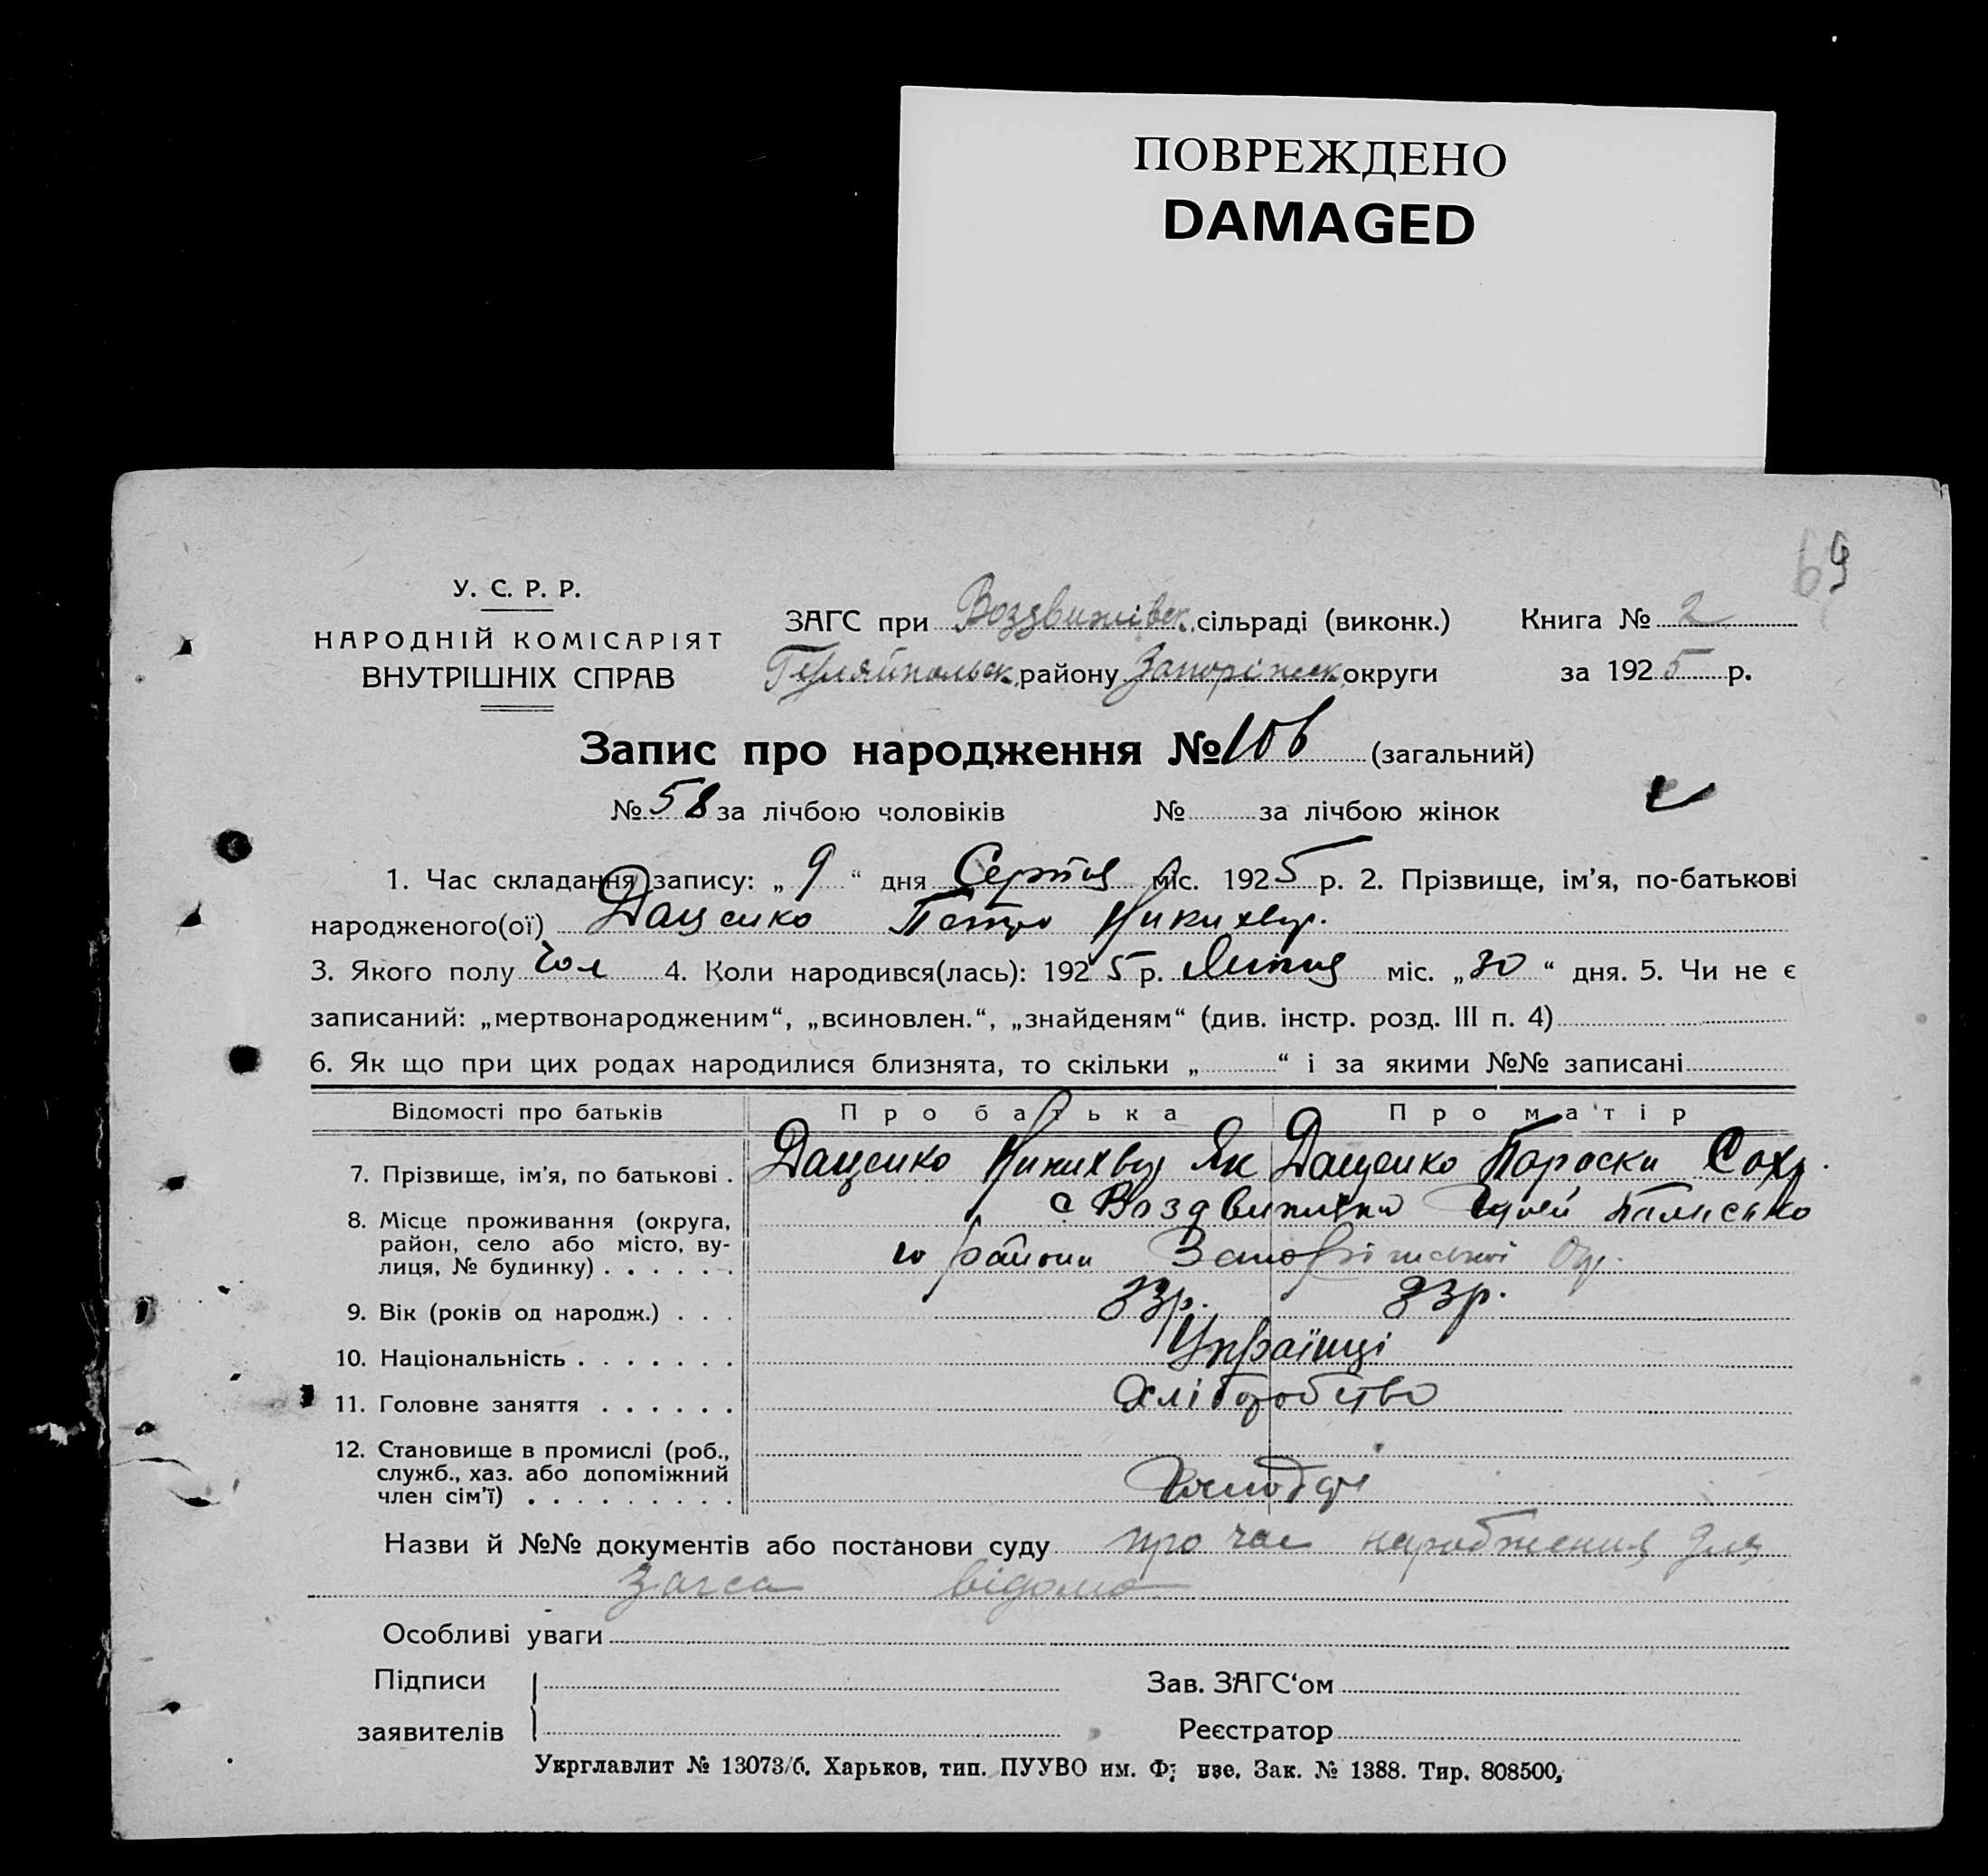 ПОВРЕЖДЕНО
DAMAGED
69
У. С. Р. Р.
НАРОДНІЙ КОМІСАРІЯТ
ВНУТРІШНІХ СПРАВ
ЗАГС при Воздвижівск. сільраді (виконк.) Книга № 2
Гуляйпольск. району Запоріжск. округи за 1925 р.
Запис про народження № 106 (загальний)
№ 58 за лічбою чоловіків № за лічбою жінок
1. Час складання запису: „ 9 “ дня Серпня міс. 1925 р. 2. Прізвище, ім’я, по-батькові
народженого(ої) Даценко Петро Никихвор.
3. Якого полу чол 4. Коли народився(лась): 1925 р. Липня міс. „ 30 “ дня. 5. Чи не є
записаний: „мертвонародженим“, „всиновлен.“, „знайденям“ (див. інстр. розд. III п. 4)
6. Як що при цих родах народилися близнята, то скільки „ “ і за якими №№ записані
Відомості про батьків Про батька Про матір
7. Прізвище, ім’я, по батькові . Даценко Никихвор Як Даценко Параски Сахр.
8. Місце проживання (округа, с Воздвижівка
район, село або місто, ву- го району Запоріжської Окр.
лиця, № будинку) . . . . . .
9. Вік (років од народж.) . . . 33р. 33р.
10. Національність . . . . . . . Українці
11. Головне заняття . . . . . . хліборобство
12. Становище в промислі (роб.,
служб., хаз. або допоміжний
член сім’ї) . . . . . . . . .
Назви й №№ документів або постанови суду про час народження для
Загса відомо
Особливі уваги
Підписи Зав. ЗАГС‘ом
заявителів Реєстратор
Укрглавлит № 13073/б. Харьков, тип. ПУУВО им. Зак. № 1388. Тир. 808500,